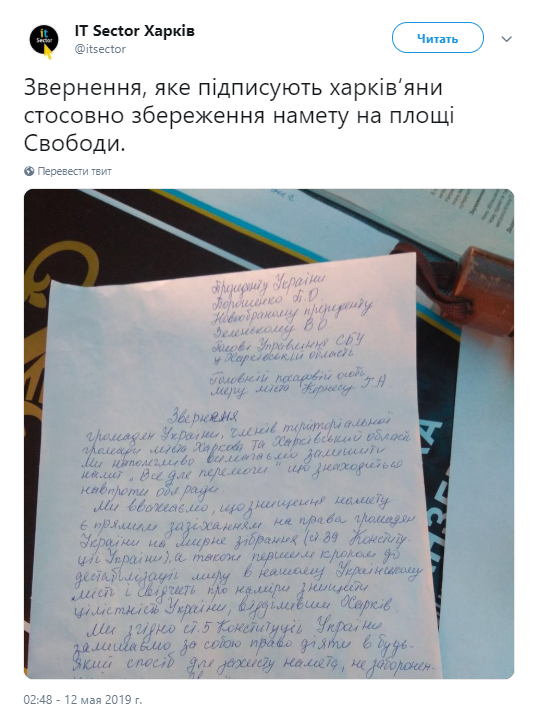 it
Sector
IT Sector Харків
@itsector
Читать
Звернення, яке підписують харків‘яни
стосовно збереження намету на площі
Свободи.
Перевести твит
Президенту України
Порошенко П.О
Новообраному президенту
Зеленському В О
Голові Управління СБУ
у Харківській області
Головній посадовій особі
меру міста Кернесу Г А
Звернення
громадян України, членів територіальної
громади міста Харкова та Харківській області
Ми наполегливо вимагаємо залишити
намет „Все для перемоги" що знаходиться
навпроти обл ради.
Ми вважаємо, що знищення намету
є прямим зазіханням на права громадян
України на мирне зібрання (ст.39 Конститу-
ції України), а також першим кроком до
дестабілізації миру в нашому Українському
місті і свідчеть про наміри знищити
цілістність України, відділивши Харків.
Ми згідно ст.5 Конституціїь України
залишаємо за собою право діяти в будь-
який спосіб для захисту намета, не заборонен-
02:48 - 12 мая 2019 г.